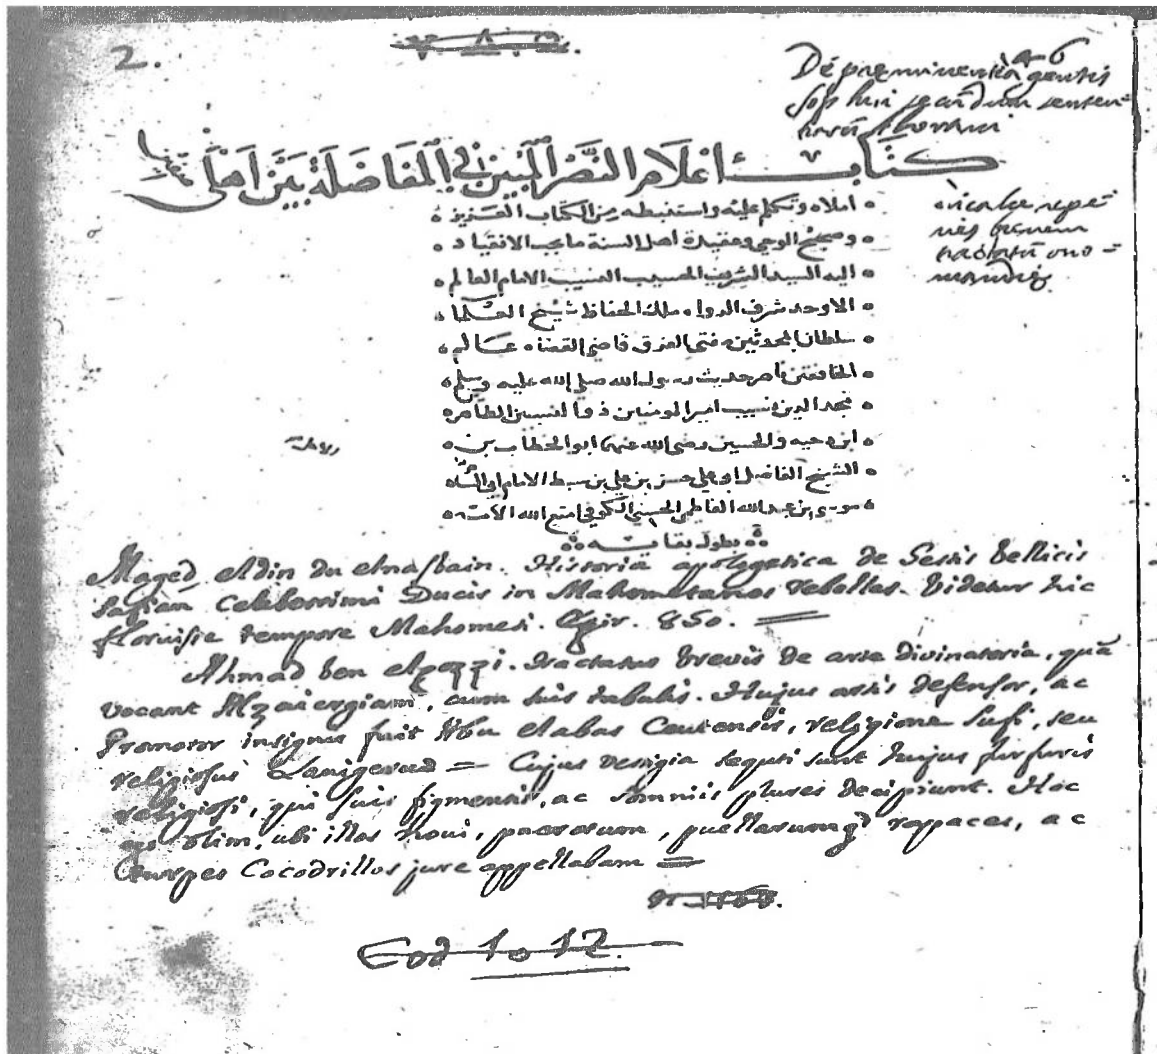 2.
De praeminentia gentis
secundum senten-
كتاب أعلام النصر المبين في المفاضلة بين أهلي صفين
املاه وتكلم عليه واستنبطه من الكتاب العزيز
وصحيح الوحي وعقيدة أهل السنة ما يجب الانقياد
اليه السيد الشريف الحسيب النسيب الامام العالم
الاوحد شرف الدولة ملك الحفاظ شيخ العلماء
سلطان المحدثين مفتي الفرق قاضي القضاة عالم
الخافقين ناصر حديث رسول الله صلى الله عليه وسلم
مجد الدين نسيب امير المومنين ذو النسبين الطاهره
ابن دحيه والحسين رضي الله عنهما ابو الخطاب بن
الشيخ الفاضل ابي علي حسن بن علي بن سبط الامام ابي
موسى بن عبد الله الفاطمي الحسيني الكوفي امتع الله الامة
بطول بقايه
Maged eldin du elnasbain. Historia apologetica de Gestis bellicis
Safian Celeberrimi Ducis in Mahometanos rebelles. Videtur hic
floruisse tempore Mahometi. Egir. 850.
Ahmad ben elgozzi. tractatus brevis de arte divinatoria, quā
vocant Alzaiergiam, cum suis tabulis. Hujus artis defensor, ac
Promotor insignis fuit Abu elabas Ceutensis, religione Sufi, seu
religiosus Lanigerus = Cujus vestigia sequti sunt hujus furfuris
religiosi, qui suis figmentis, ac somniis plures decipiunt. Hoc
ego olim, ubi illos novi, puerorum, puellarumq rapaces, ac
turpes Cocodrillos jure appellabam =
Cod 1012